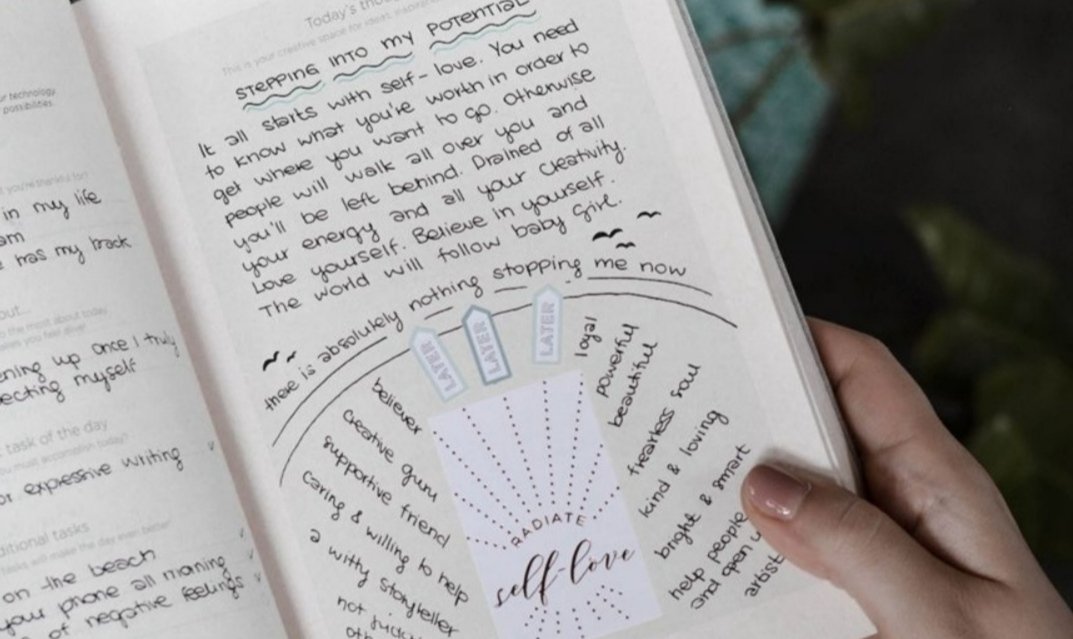 ur technology
possibilities.
in my life
am
has my back
out...
the most about today
makes you feel alive?
ening up once I truly
ecting myself
task of the day
you must accomplish today?
or expressive writing
ditional tasks
tasks will make the day even better?
on the beach
your phone all morning
of negative feelings
Today's thou
This is your creative space for ideas, inspirati
STEPPING INTO MY POTENTIAL
It all starts with self-love. You need
to know what you're worth in order to
get where you want to go. Otherwise
people will walk all over you and
you'll be left behind. Drained of all
your energy and all your creativity.
Love yourself. Believe in yourself.
The world will follow baby girl.
there is absolutely nothing stopping me now
LATER
LATER
LATER
believer
creative guru
supportive friend
caring & willing to help
a witty storyteller
not
loyal
powerful
beautiful
fearless soul
kind & loving
bright & smart
help people
and open
artist
RADIATE
self-love